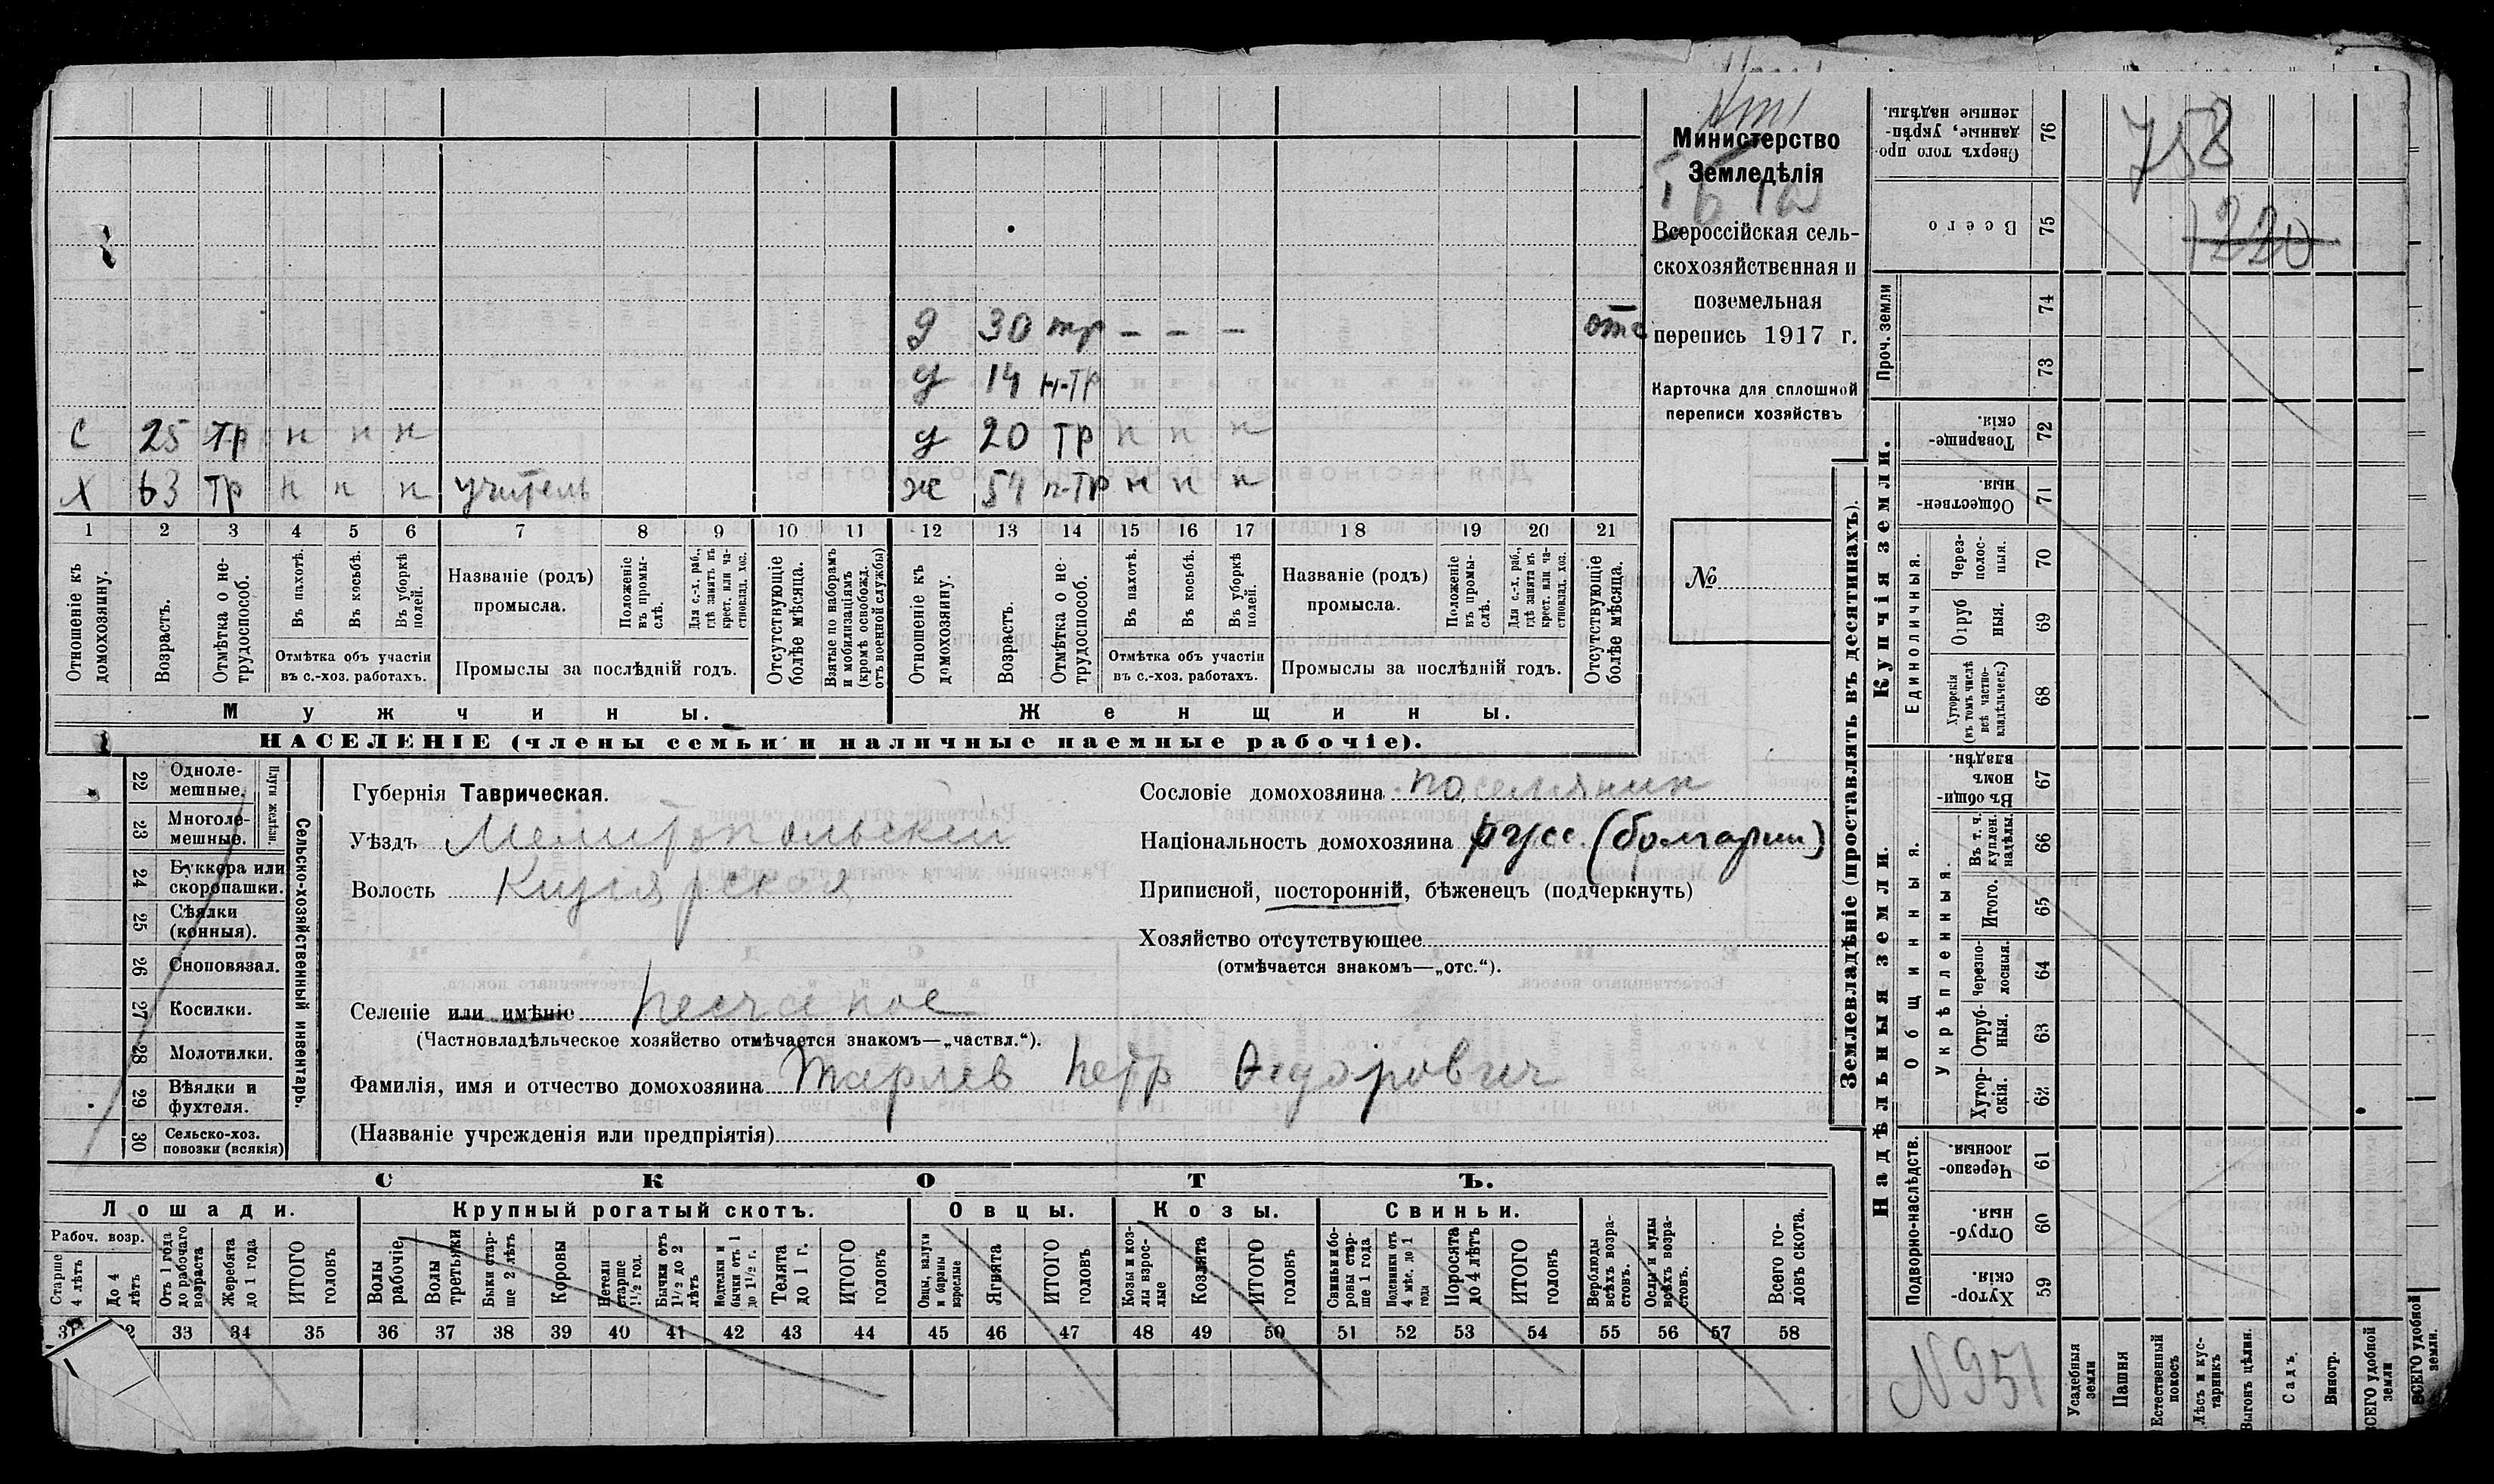 Министерство
Земледѣлія
Всероссійская сель-
скохозяйственная и
поземельная
перепись 1917 г.
Карточка для сплошной
переписи хозяйствъ
№
д 30 тр – – – отс
д 14 н-тр
С 25 тр н н н
д 20 тр н н н
Х 63 тр н н н учитель
ж 54 н-тр н н н
1 2 3 4 5 6 7 8 9 10 11 12 13 14 15 16 17 18 19 20 21
Отношеніе къ домохозяину.
Возрастъ.
Отмѣтка о не-трудоспособ.
Въ пахотѣ.
Въ косьбѣ.
Въ уборкѣ полей.
Отмѣтка объ участіи
въ с.-хоз. работахъ.
Названіе (родъ)
промысла.
Положеніе въ промы-слѣ.
Для с.-х. раб., гдѣ занятъ въ крест. или ча-стновлад. хоз.
Промыслы за послѣдній годъ.
Отсутствующіе болѣе мѣсяца.
Взятые по наборамъ и мобилизаціямъ (кромѣ освобожд. отъ военной службы)
Отношеніе къ домохозяину.
Возрастъ.
Отмѣтка о не-трудоспособ.
Въ пахотѣ.
Въ косьбѣ.
Въ уборкѣ полей.
Отмѣтка объ участіи
въ с.-хоз. работахъ.
Названіе (родъ)
промысла.
Положеніе въ промы-слѣ.
Для с.-х. раб., гдѣ занята въ крест. или ча-стновлад. хоз.
Промыслы за послѣдній годъ.
Отсутствующіе болѣе мѣсяца.
Мужчины.
Женщины.
НАСЕЛЕНІЕ (члены семьи и наличные наемные рабочіе).
Сельско-хозяйственный инвентарь.
22 Одноле-мешные.
23 Многоле-мешные.
24 Буккера или скоропашки.
25 Сѣялки (конныя).
26 Сноповязал.
27 Косилки.
28 Молотилки.
29 Вѣялки и фухтеля.
30 Сельско-хоз. повозки (всякія)
Губернія Таврическая.
Уѣздъ Мелитопольский
Волость Кизіярская
Сословіе домохозяина поселянин
Національность домохозяина русс. (болгарин)
Приписной, посторонній, бѣженецъ (подчеркнуть)
Хозяйство отсутствующее
(отмѣчается знакомъ—„отс.“).
Селеніе или имѣніе Песчаное
(Частновладѣльческое хозяйство отмѣчается знакомъ—„частвл.“).
Фамилія, имя и отчество домохозяина Петр Федорович
(Названіе учрежденія или предпріятія)
СКОТЪ.
Лошади.
Крупный рогатый скотъ.
Овцы.
Козы.
Свиньи.
Рабоч. возр.
Старше 4 лѣтъ
До 4 лѣтъ
Отъ 1 года до рабочаго возраста
Жеребята до 1 года
ИТОГО головъ
Волы рабочіе
Волы третьяки
Быки стар-ше 2 лѣтъ
Коровы
Нетели старше 1½ год.
Бычки отъ 1½ до 2 лѣтъ
бычки отъ 1 до 1½ г.
Телята до 1 г.
ИТОГО головъ
Овцы, валухи и бараны взрослые
Ягнята
ИТОГО головъ
Козы и коз-лы взрос-лые
Козлята
ИТОГО головъ
Свиньи и бо-ровы стар-ше 1 года
Подсвинки отъ 4 мѣс. до 1 года
Поросята до 4 лѣтъ
ИТОГО головъ
Верблюды всѣхъ возра-стовъ.
Ослы и мулы всѣхъ возра-стовъ.
Всего го-ловъ скота.
33 34 35 36 37 38 39 40 41 42 43 44 45 46 47 48 49 50 51 52 53 54 55 56 57 58
Землевладѣніе (проставлять въ десятинахъ).
Купчія земли.
Надѣльныя земли.
76 Сверхъ того про-данные, укрѣп-ленные надѣлы.
75 Всего
Проч. земли
74
73
72 Товарище-скія.
71 Обществен-ныя.
Единоличныя.
70 Через-полос-ныя.
69 Отруб ныя.
68 Хуторскія (въ томъ числѣ всѣ частно-владѣльческ.)
67 Въ общи номъ владѣн.
Общинныя.
Укрѣпленныя.
66 Въ т. ч. куплен. надѣлы.
65 Итого.
64 Черезпо-лосныя.
63 Отруб-ныя.
62 Хутор-скія.
Подворно-наслѣдств.
61 Черезпо-лосныя.
60 Отруб-ныя.
59 Хутор-скія.
758
1220
N 951
Усадебныя земли
Пашня
Естественный покосъ
Лѣсъ и кус-тарникъ
Выгонъ цѣлин.
Садъ.
Виногр.
ВСЕГО удобной земли
ВСЕГО удобной земли.